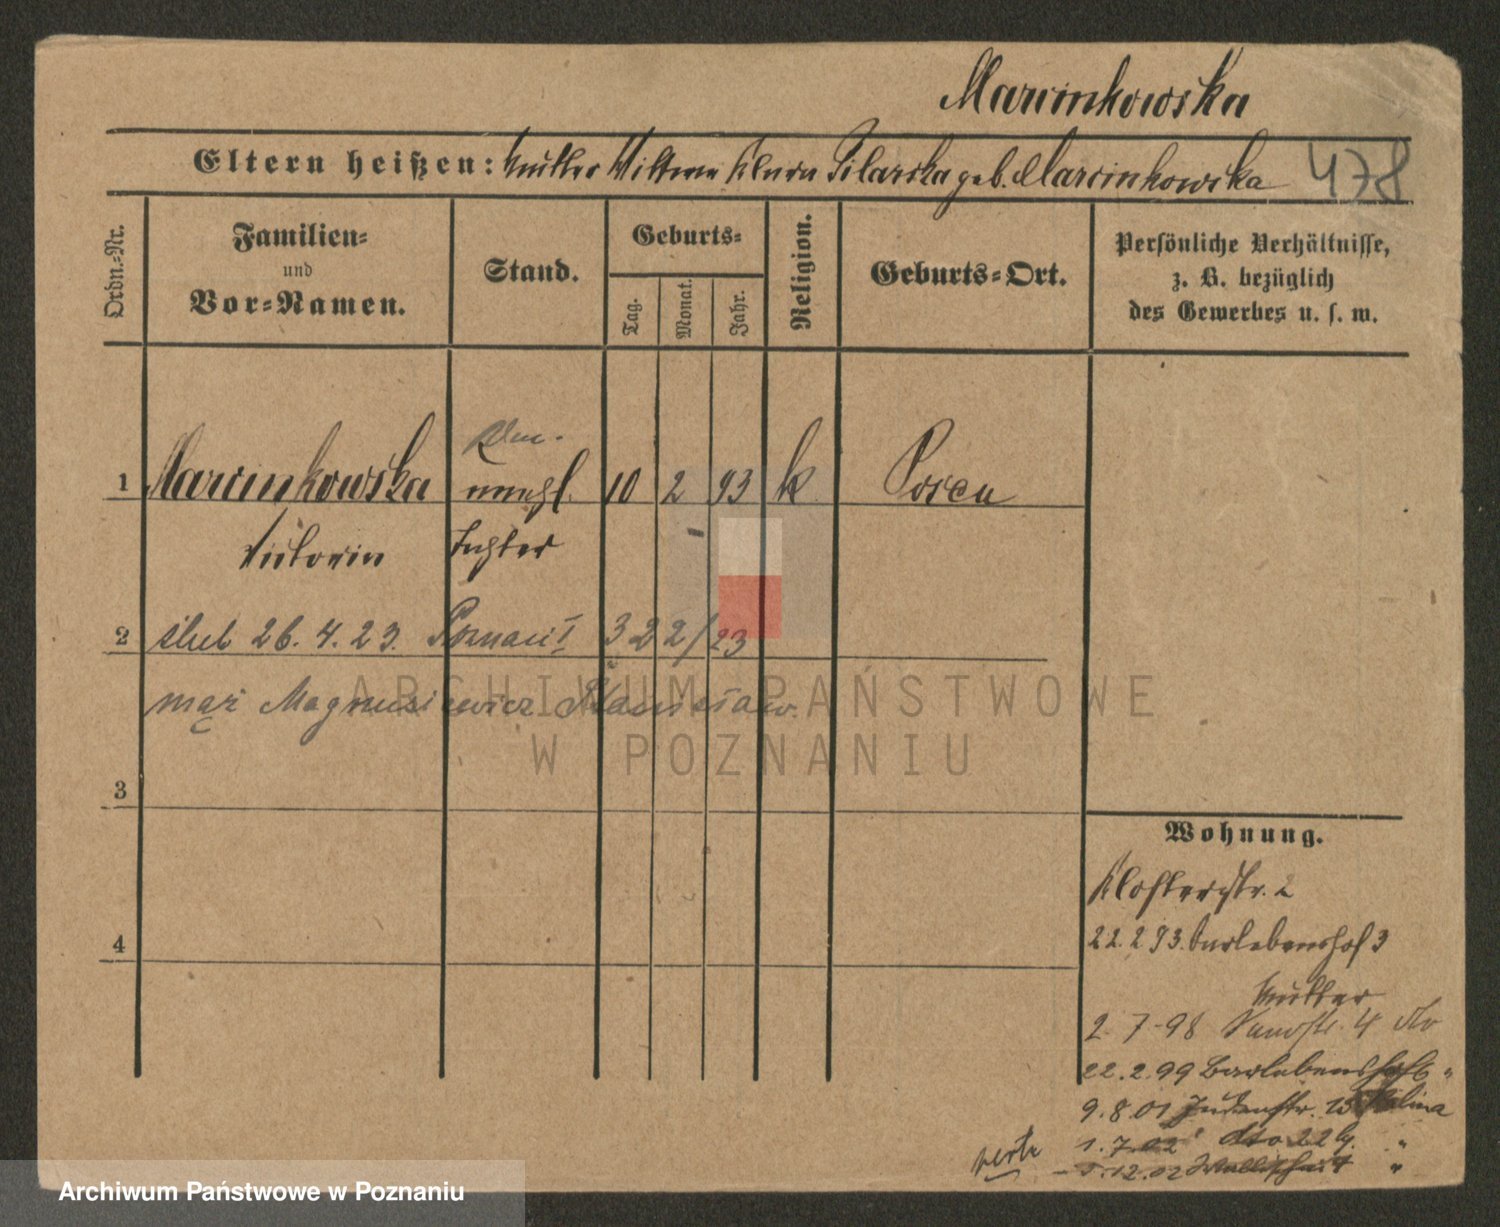 Marcinkowska
Eltern heißen: Mutter Wittwe Pilarska geb. Marcinkowska 478
Ordn.-Nr.
Familien-
und
Vor-Namen.
Stand.
Geburts-
Tag.
Monat.
Jahr.
Religion.
Geburts-Ort.
Persönliche Verhältnisse,
z. B. bezüglich
des Gewerbes u. s. w.
1 Marcinkowska unehl. 10 2 93 k Posen
Tochter
2 ślub 26. 4. 23. Poznań I 322/23
mąż Magnusiewicz Stanisław.
3
4
Wohnung.
Klosterstr. 2
22. 2 93. Berlebenshof 3
Mutter
2. 7. 98 Sandstr. 4 dto
22. 2. 99 Berlebenshof "
9. 8. 01 Judenstr. 15
1. 7. 02 dto 22 "
12. 02 Wallischei "
verte
ARCHIWUM PAŃSTWOWE
W POZNANIU
Archiwum Państwowe w Poznaniu